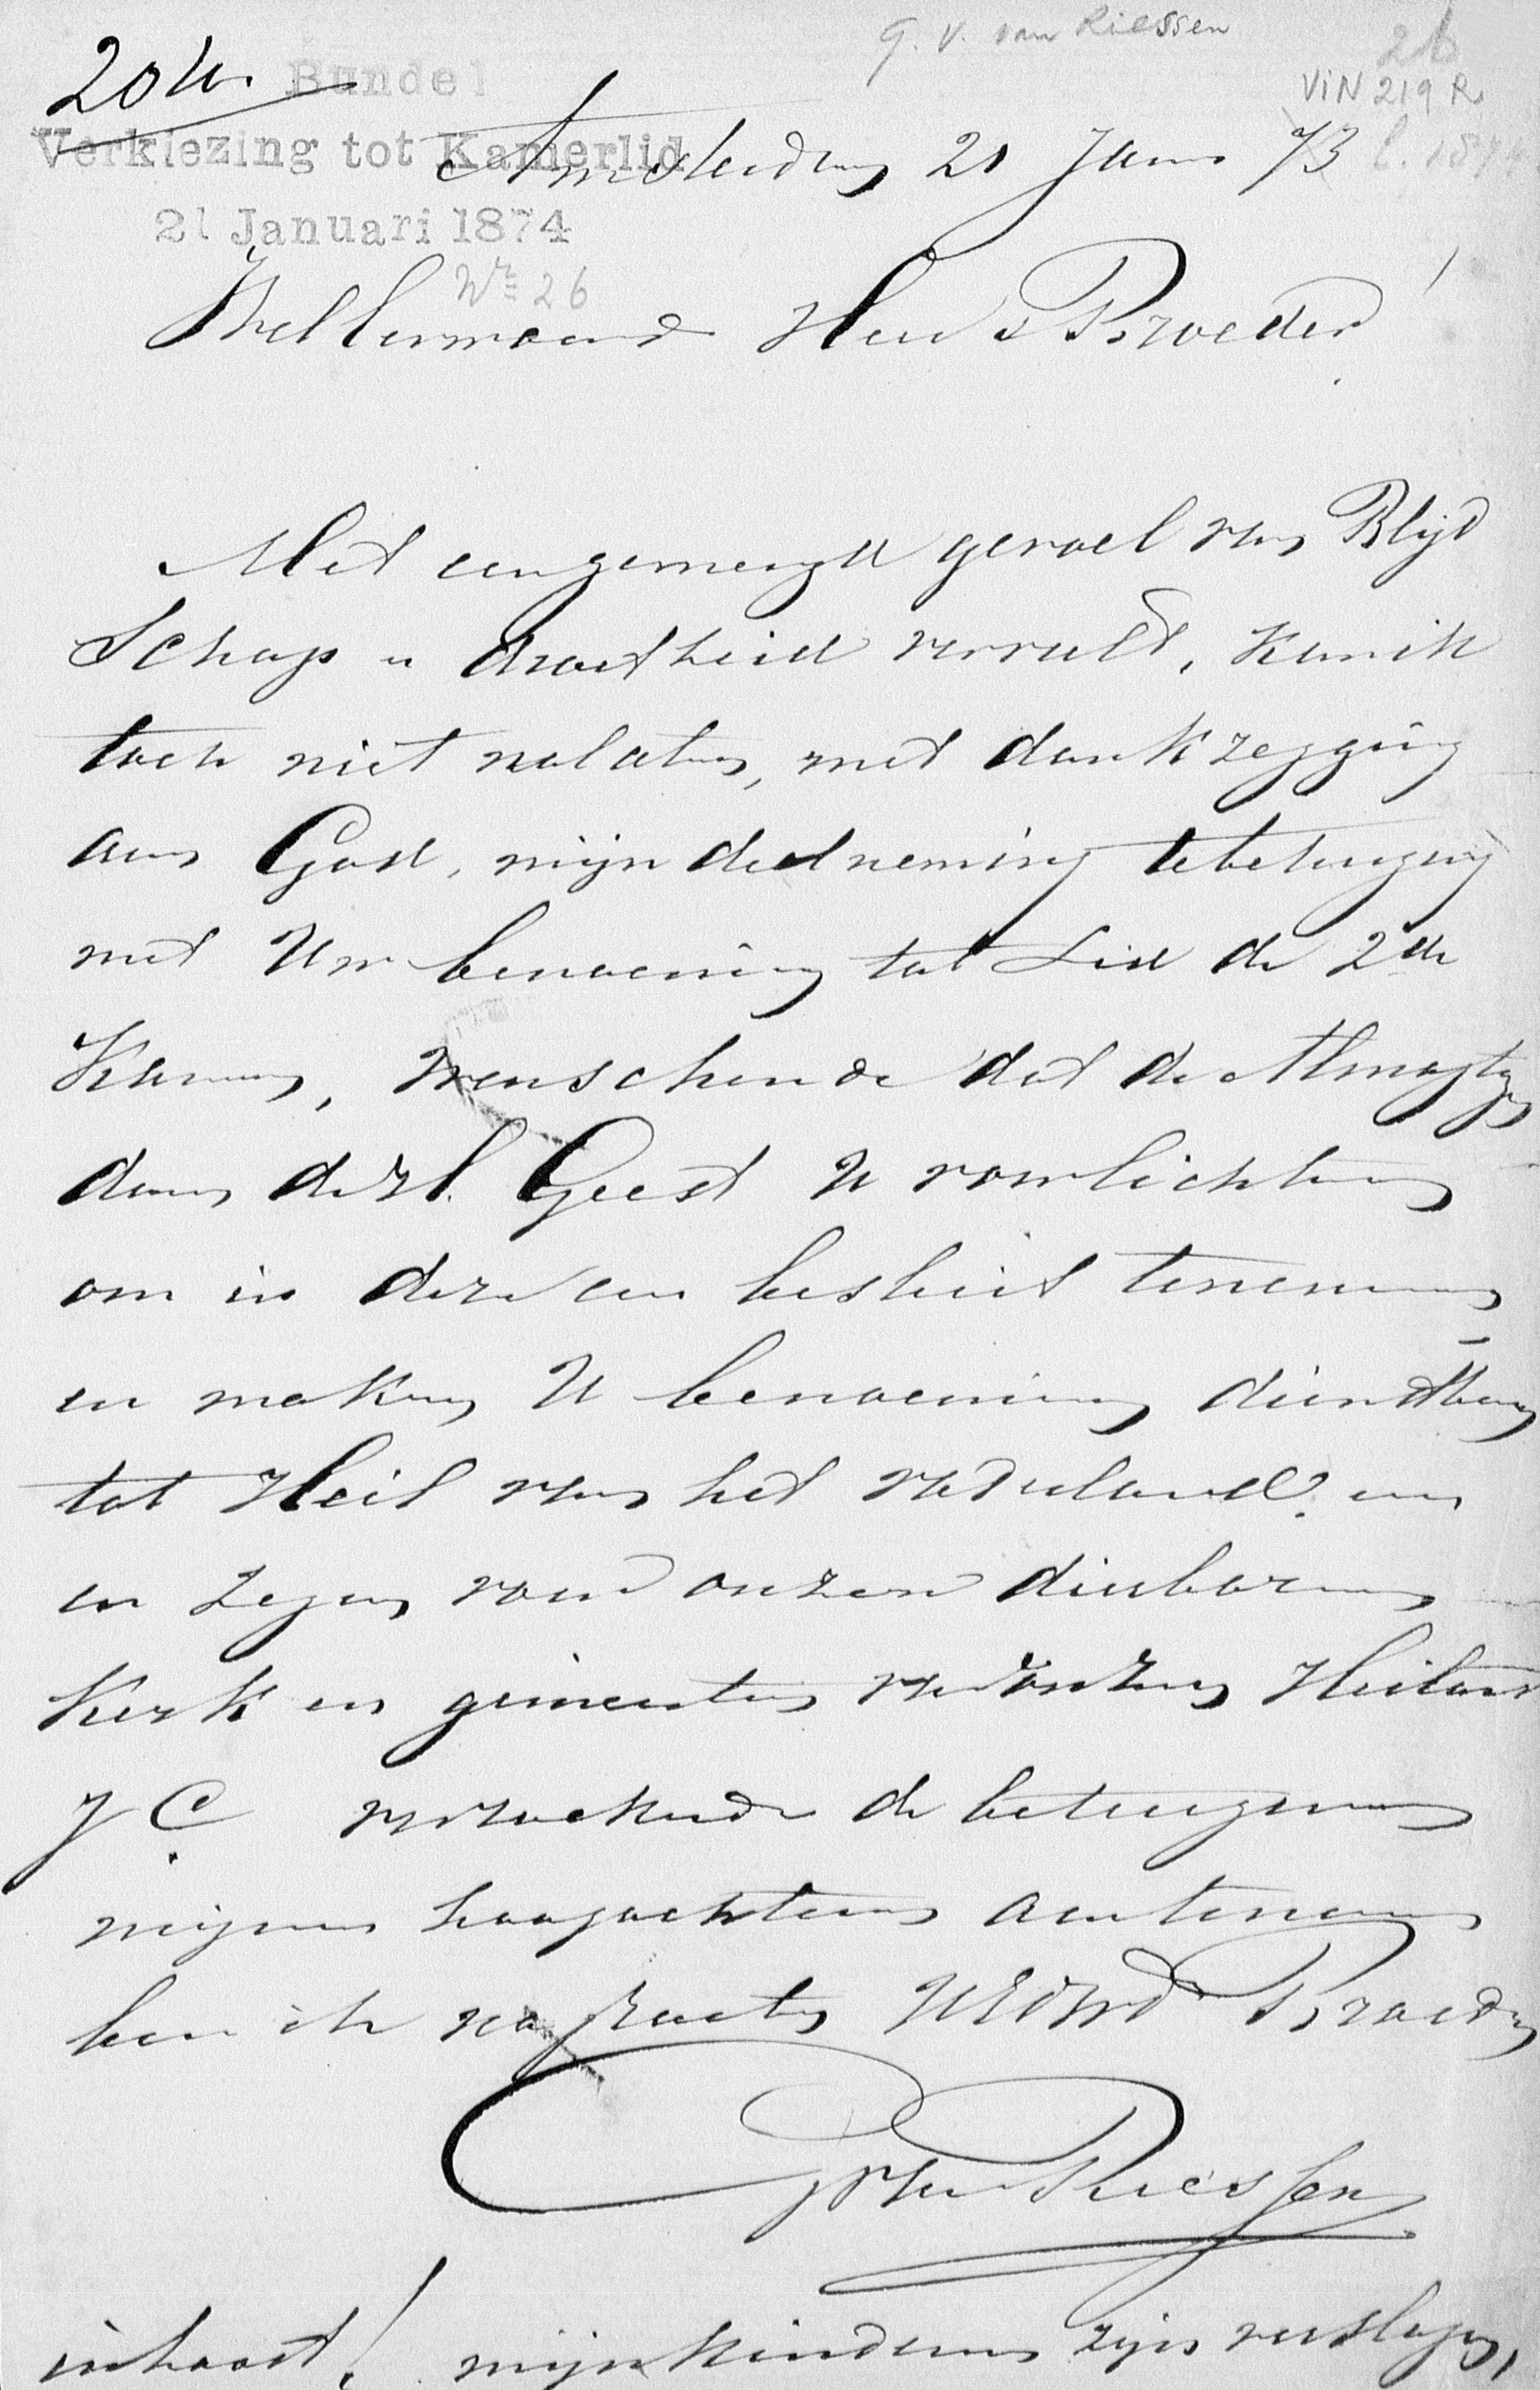 G. V. van Riessen
26
20W.
Bundel
VIN 219 R
Verkiezing tot Kamerlid
Amsterdam 21 Jan 73
l. 1874
21 Januari 1874
No 26
WelEerwaarde Heer & Broeder!
Met een gemengd gevoel van Blijd
schap en droefheid vervuld, kan ik
toch niet nalaten, met dankzegging
aan God, mijn deelneming te betuigen
met Uw benoeming tot Lid de 2de
Kamer, wenschende dat de Almagtige
door dezl. Geest U voorlichten
om in deze een besluit te nemen
en maken U benoeming dienstbaar
tot Heil van het vaderland en
en Zegen voor onzen dierbaren
Kerk en gemeenten van onzen Heiland
J C verzoekende de betuigen
mijner hoogachten aan te nemen
ben ik UEerwd Broeder
G V van Riessen
in haast! mijn kinderen zijn verslagen,